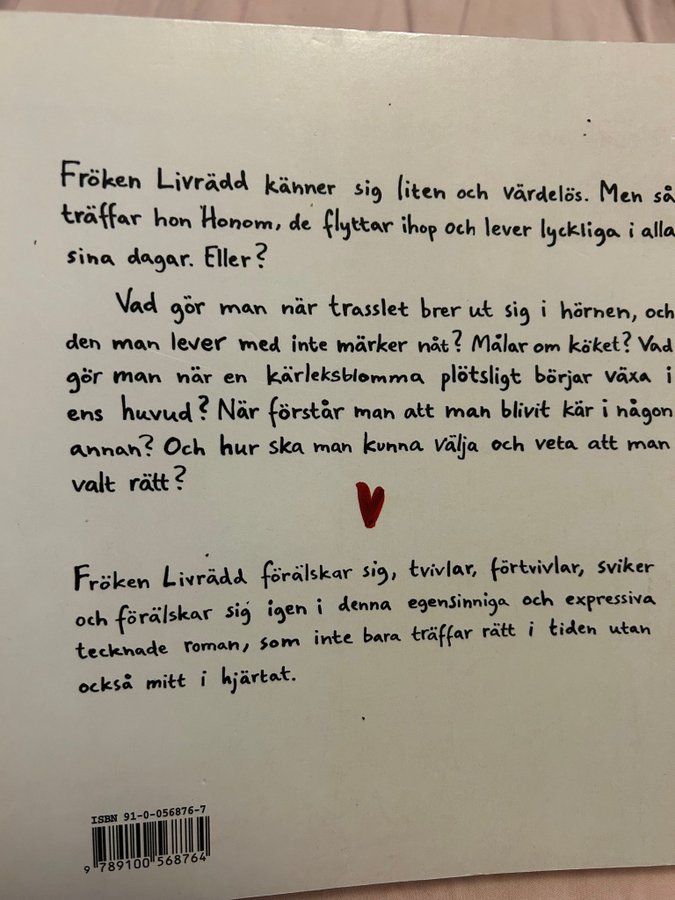 Fröken Livrädd känner sig liten och värdelös. Men så
träffar hon Honom, de flyttar ihop och lever lyckliga i alla
sina dagar. Eller?
Vad gör man när trasslet brer ut sig i hörnen, och
den man lever med inte märker nåt? Målar om köket? Vad
gör man när en kärleksblomma plötsligt börjar växa i
ens huvud? När förstår man att man blivit kär i någon
annan? Och hur ska man kunna välja och veta att man
valt rätt?
Fröken Livrädd förälskar sig, tvivlar, förtvivlar, sviker
och förälskar sig igen i denna egensinniga och expressiva
tecknade roman, som inte bara träffar rätt i tiden utan
också mitt i hjärtat.
ISBN 91-0-056876-7
9 789100 568764